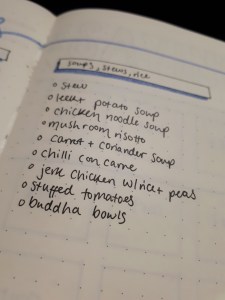 soups, stews, rice
stew
leek + potato soup
chicken noodle soup
mushroom risotto
carrot + coriander soup
chilli con carne
jerk chicken w/rice + peas
stuffed tomatoes
buddha bowls